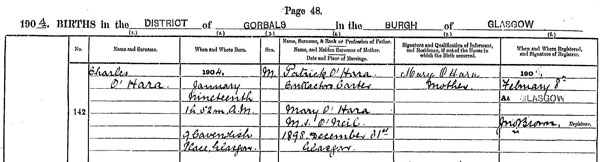 Page 48.
1904. BIRTHS in the DISTRICT of GORBALS in the BURGH of GLASGOW
(1.) (2.) (3.) (4.) (5.) (6.)
No. Name and Surname. When and Where Born. Sex. Name, Surname, & Rank or Profession of Father. Name, and Maiden Surname of Mother. Date and Place of Marriage. Signature and Qualification of Informant, and Residence, if out of the House in which the Birth occurred. When and Where Registered, and Signature of Registrar.
Charles 1904, M. Patrick O'Hara Mary O'Hara 1904,
O'Hara January Contractors Carter Mother February 8th
Nineteenth At GLASGOW
142 1h. 52m A.M. Mary O'Hara
M.S. O'Neil Jno Brown, Registrar.
9 Cavendish 1898, December 31st
Place, Glasgow. Glasgow.